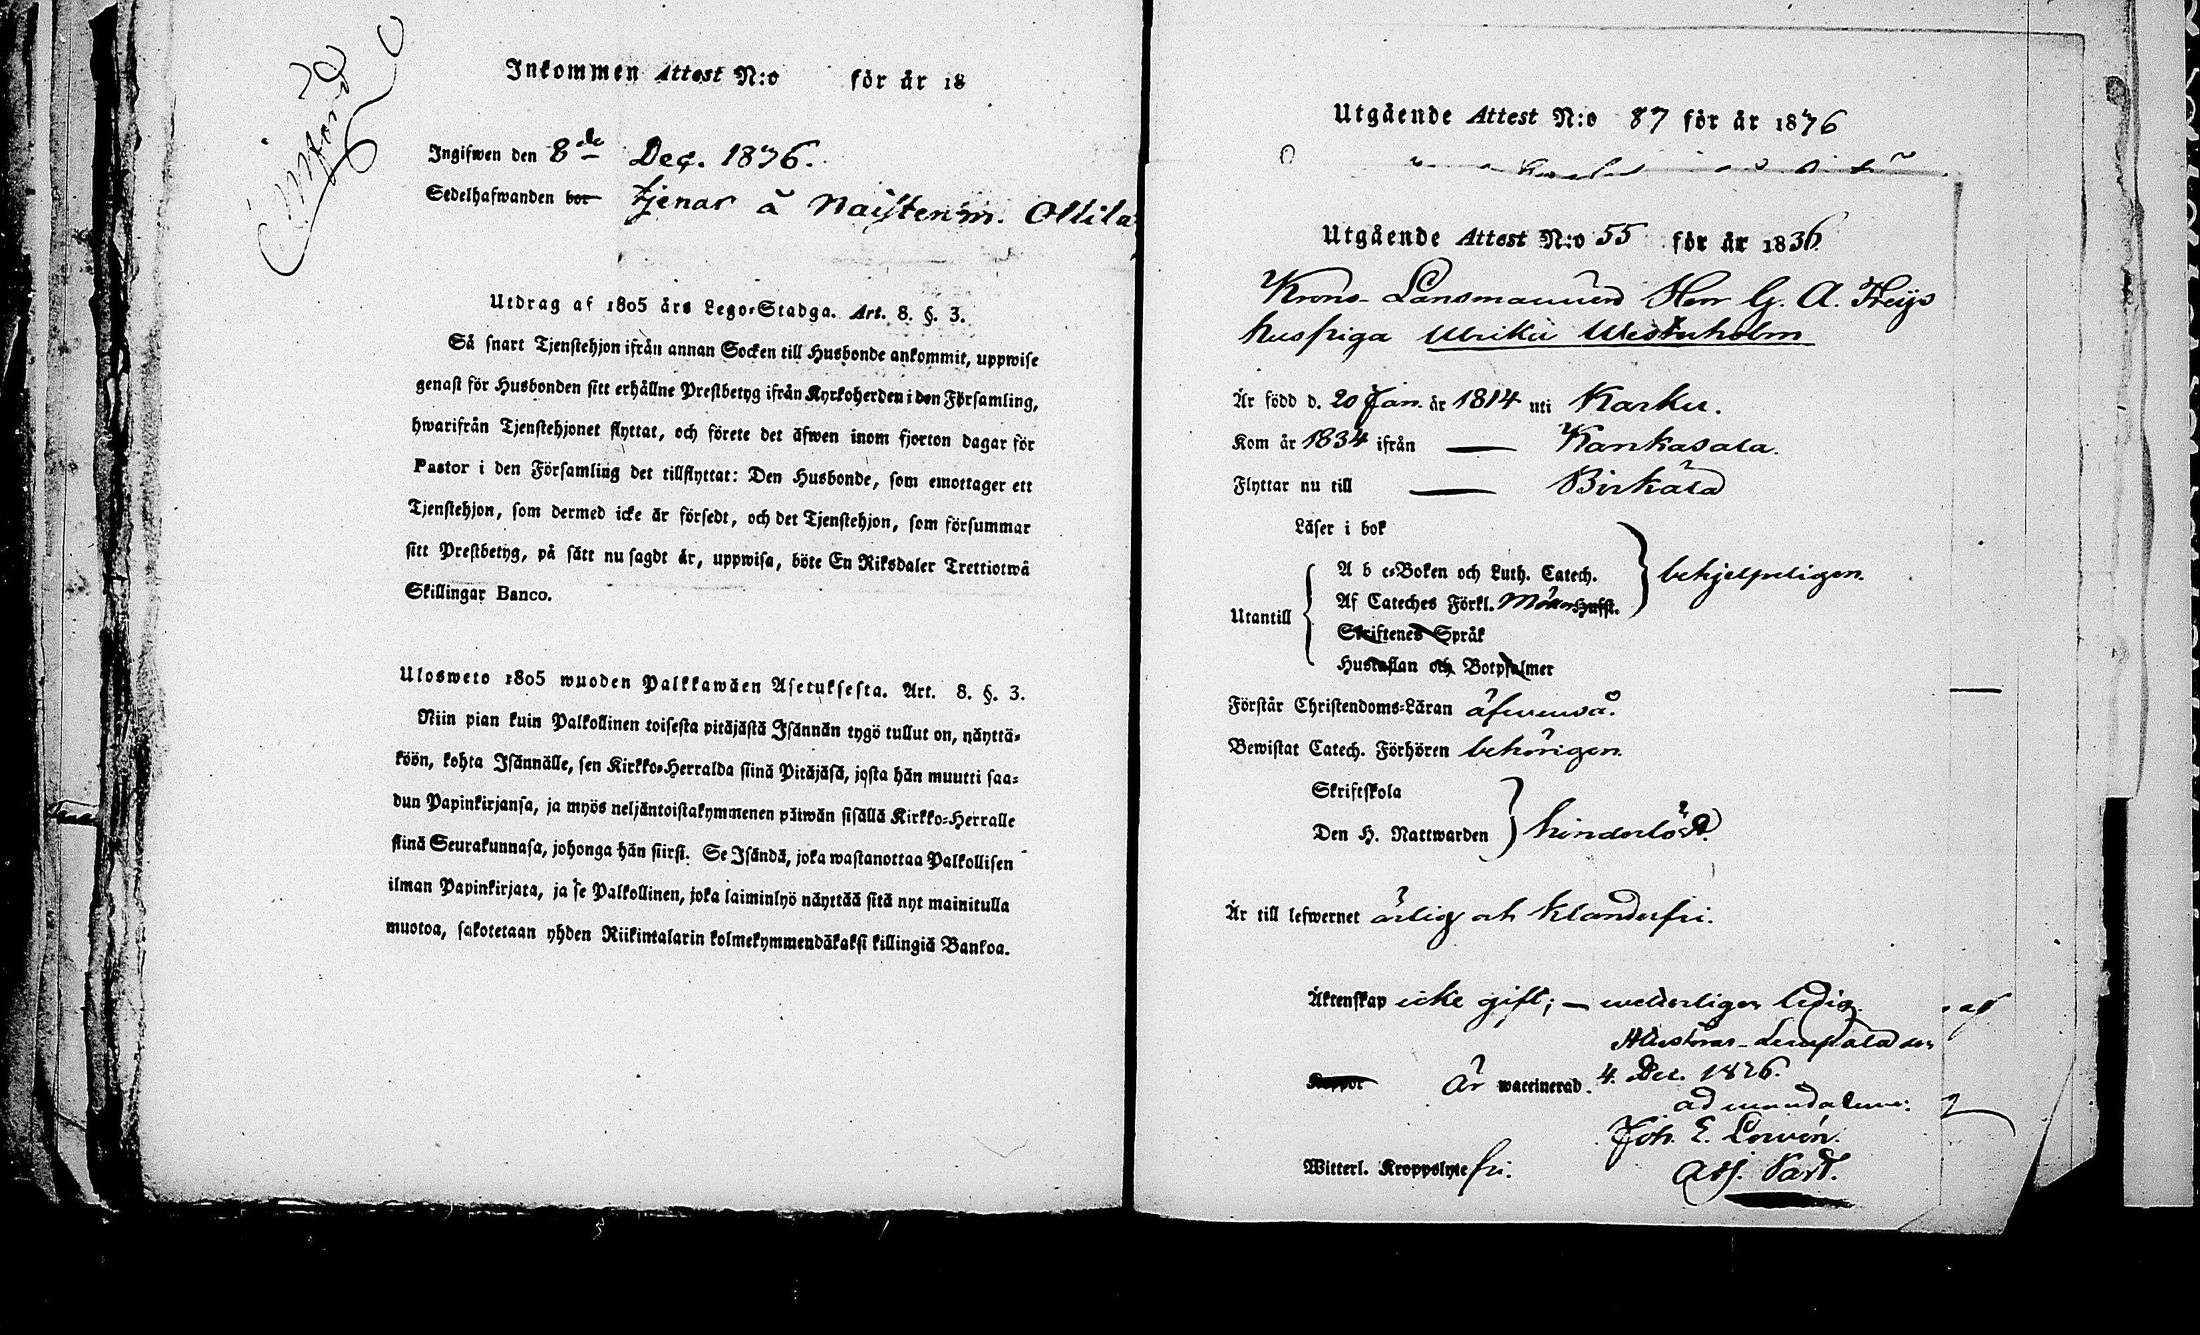 Inkommen Attest N:o för år 18
Ingifwen den 8de Dec. 1836.
Sedelhafwanden bor tjenar å Naistenm. Ollila
Utdrag af 1805 års Lego-Stadga. Art. 8. §. 3.
Så snart Tjenstehjon ifrån annan Socken till Husbonde ankommit, uppwise
genast för Husbonden sitt erhållne Prestbetyg ifrån Kyrkoherden i den Församling,
hwarifrån Tjenstehjonet flyttat, och förete det äfwen inom fjorton dagar för
Pastor i den Församling det tillflyttat: Den Husbonde, som emottager ett
Tjenstehjon, som dermed icke är försedt, och det Tjenstehjon, som försummar
sitt Prestbetyg, på sätt nu sagdt är, uppwisa, böte En Riksdaler Trettiotwå
Skillingar Banco.
Ulosweto 1805 wuoden Palkkawäen Asetuksesta. Art. 8. §. 3.
Niin pian kuin Palkollinen toisesta pitäjästä Isännän tygö tullut on, näyttä-
köön, kohta Isännälle, sen Kirkko-Herralda siinä Pitäjäsä, josta hän muutti saa-
dun Papinkirjansa, ja myös neljäntoistakymmenen päiwän sisällä Kirkko-Herralle
siinä Seurakunnasa, johonga hän siirsi. Se Isändä, joka wastanottaa Palkollisen
ilman Papinkirjata, ja se Palkollinen, joka laiminlyö näyttää sitä nyt mainitulla
muotoa, sakotetaan yhden Riikintalarin kolmekymmendäkaksi killingiä Bankoa.
Utgående Attest N:o 87 för år 1876
Utgående Attest N:o 55 för år 1836
Krono-Länsmannen Herr G. A. Heijs
huspiga Ulrika Westerholm
Är född d. 20 Jan. år 1814 uti Karku.
Kom år 1834 ifrån — Kankasala.
Flyttar nu till — Birkala
Läser i bok
A b c-Boken och Luth. Catech. behjelpeligen.
Utantill Af Cateches Förkl. Hufst.
Skriftenes Språk
Hustaflan och Botpsalmer
Förstår Christendoms-Läran äfwenså.
Bewistat Catech. Förhören behörigen.
Skriftskola
Den H. Nattwarden hinderlöst.
Är till lefwernet ärlig och klanderfri.
Äktenskap icke gift; — wetterligen ledig.
Lempälä den
Koppor Är waccinerad. 4. Dec. 1836.
ad mandatum:
Joh. E.
Witterl. Kroppslyte fri. Adj. Past.